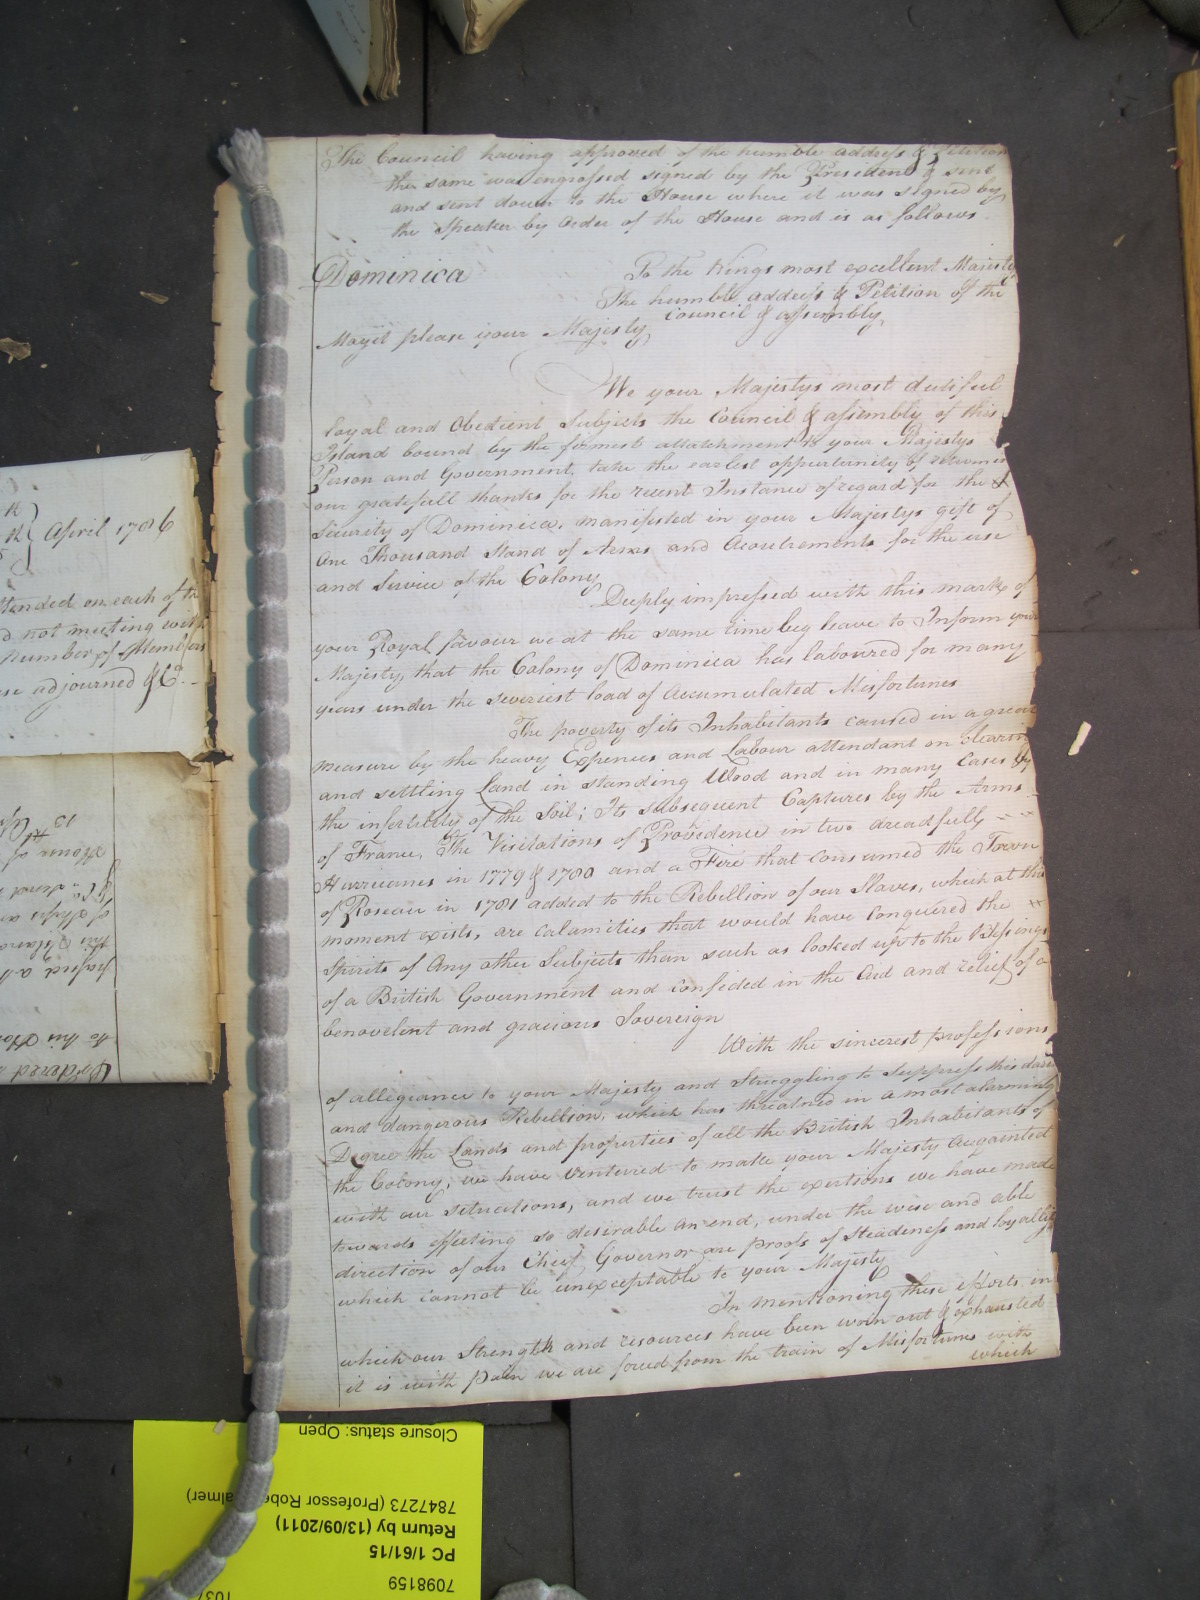 The Council having approved of the humble address & Petition
the same was engrossed signed by the President & sent
and sent down to the House where it was signed by
the Speaker by Order of the House and is as follows.
Dominica
To the Kings most excellent Majesty
The humble address & Petition of the
Council & assembly,
May it please your Majesty,
We your Majestys most dutiful
loyal and Obedient Subjects the Council & assembly of this
Island bound by the firmest attatchment to your Majestys
Person and Government, take the earlest oppertunity of returning
our gratefull thanks for the recent Instance of regard for the
Security of Dominica, manifested in your Majestys gift of
One Thousand Stand of Arms and Acoutrements for the use
and Service of the Colony
Deeply impressed with this mark of
your Royal favour we at the same time beg leave to Inform your
Majesty, that the Colony of Dominica has laboured for many
years under the severest load of Accumulated Misfortunes
The poverty of its Inhabitants caused in a great
measure by the heavy Expences and Labour attendant on clearing
and settling Land in standing Wood and in many Cases by
the infertility of the Soil; Its subsequent Captures by the Arms
of France, The Visitations of Providence in two dreadfully
Hurricanes in 1779 & 1780 and a Fire that consumed the Town
of Roseau in 1781 added to the Rebellion of our Slaves, which at this
moment exists, are calamities that would have Conquered the
Spirits of Any other Subjects than such as looked up to the blessings
of a British Government and confided in the Aid and relief of a
benovelent and gracious Sovereign
With the sincerest professions
of allegiance to your Majesty and Struggling to Suppress this
and dangerous Rebellion, which has threatned in a most alarming
Degree the Lands and properties of all the British Inhabitants of
the Colony; we have Ventured to make your Majesty acquainted
with our situations, and we trust the exertions we have made
towards effecting so desirable an end, under the wise and able
direction of our Chief Governor are proofs of Steadeness and loyallty
which cannot be unexceptable to your Majesty
In mentioning these efforts in
which our Strength and resources have been worn out & exhausted
it is with Pain we are forced from the train of Misfortunes with
which
April 1786
ttended on each of th
d not meeting with
Number of Members
se adjourned &c.
Closure status: Open
7847273 (Professor Robe almer)
Return by (13/09/2011)
PC 1/61/15
7098159